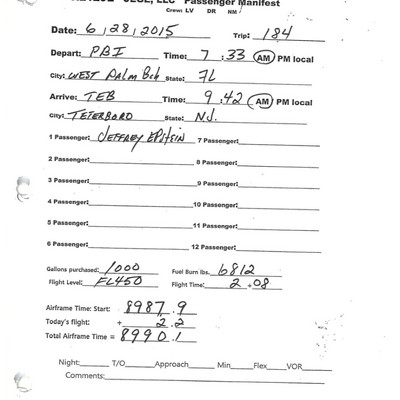 JEGE, LLC Passenger Manifest
Crew: LV DR NM
Date: 6/28/2015 Trip: 184
Depart: PBI Time: 7:33 AM PM local
City: WEST PALM Bch State: FL
Arrive: TEB Time: 9:42 AM PM local
City: TETERBORO State: NJ.
1 Passenger: JEFFREY EPSTEIN 7 Passenger:
2 Passenger: 8 Passenger:
3 Passenger: 9 Passenger:
4 Passenger: 10 Passenger:
5 Passenger: 11 Passenger:
6 Passenger: 12 Passenger:
Gallons purchased: 1000 Fuel Burn lbs. 6812
Flight Level: FL450 Flight Time: 2+08
Airframe Time: Start: 8987.9
Today's flight: + 2.2
Total Airframe Time = 8990.1
Night: T/O Approach Min Flex VOR
Comments: